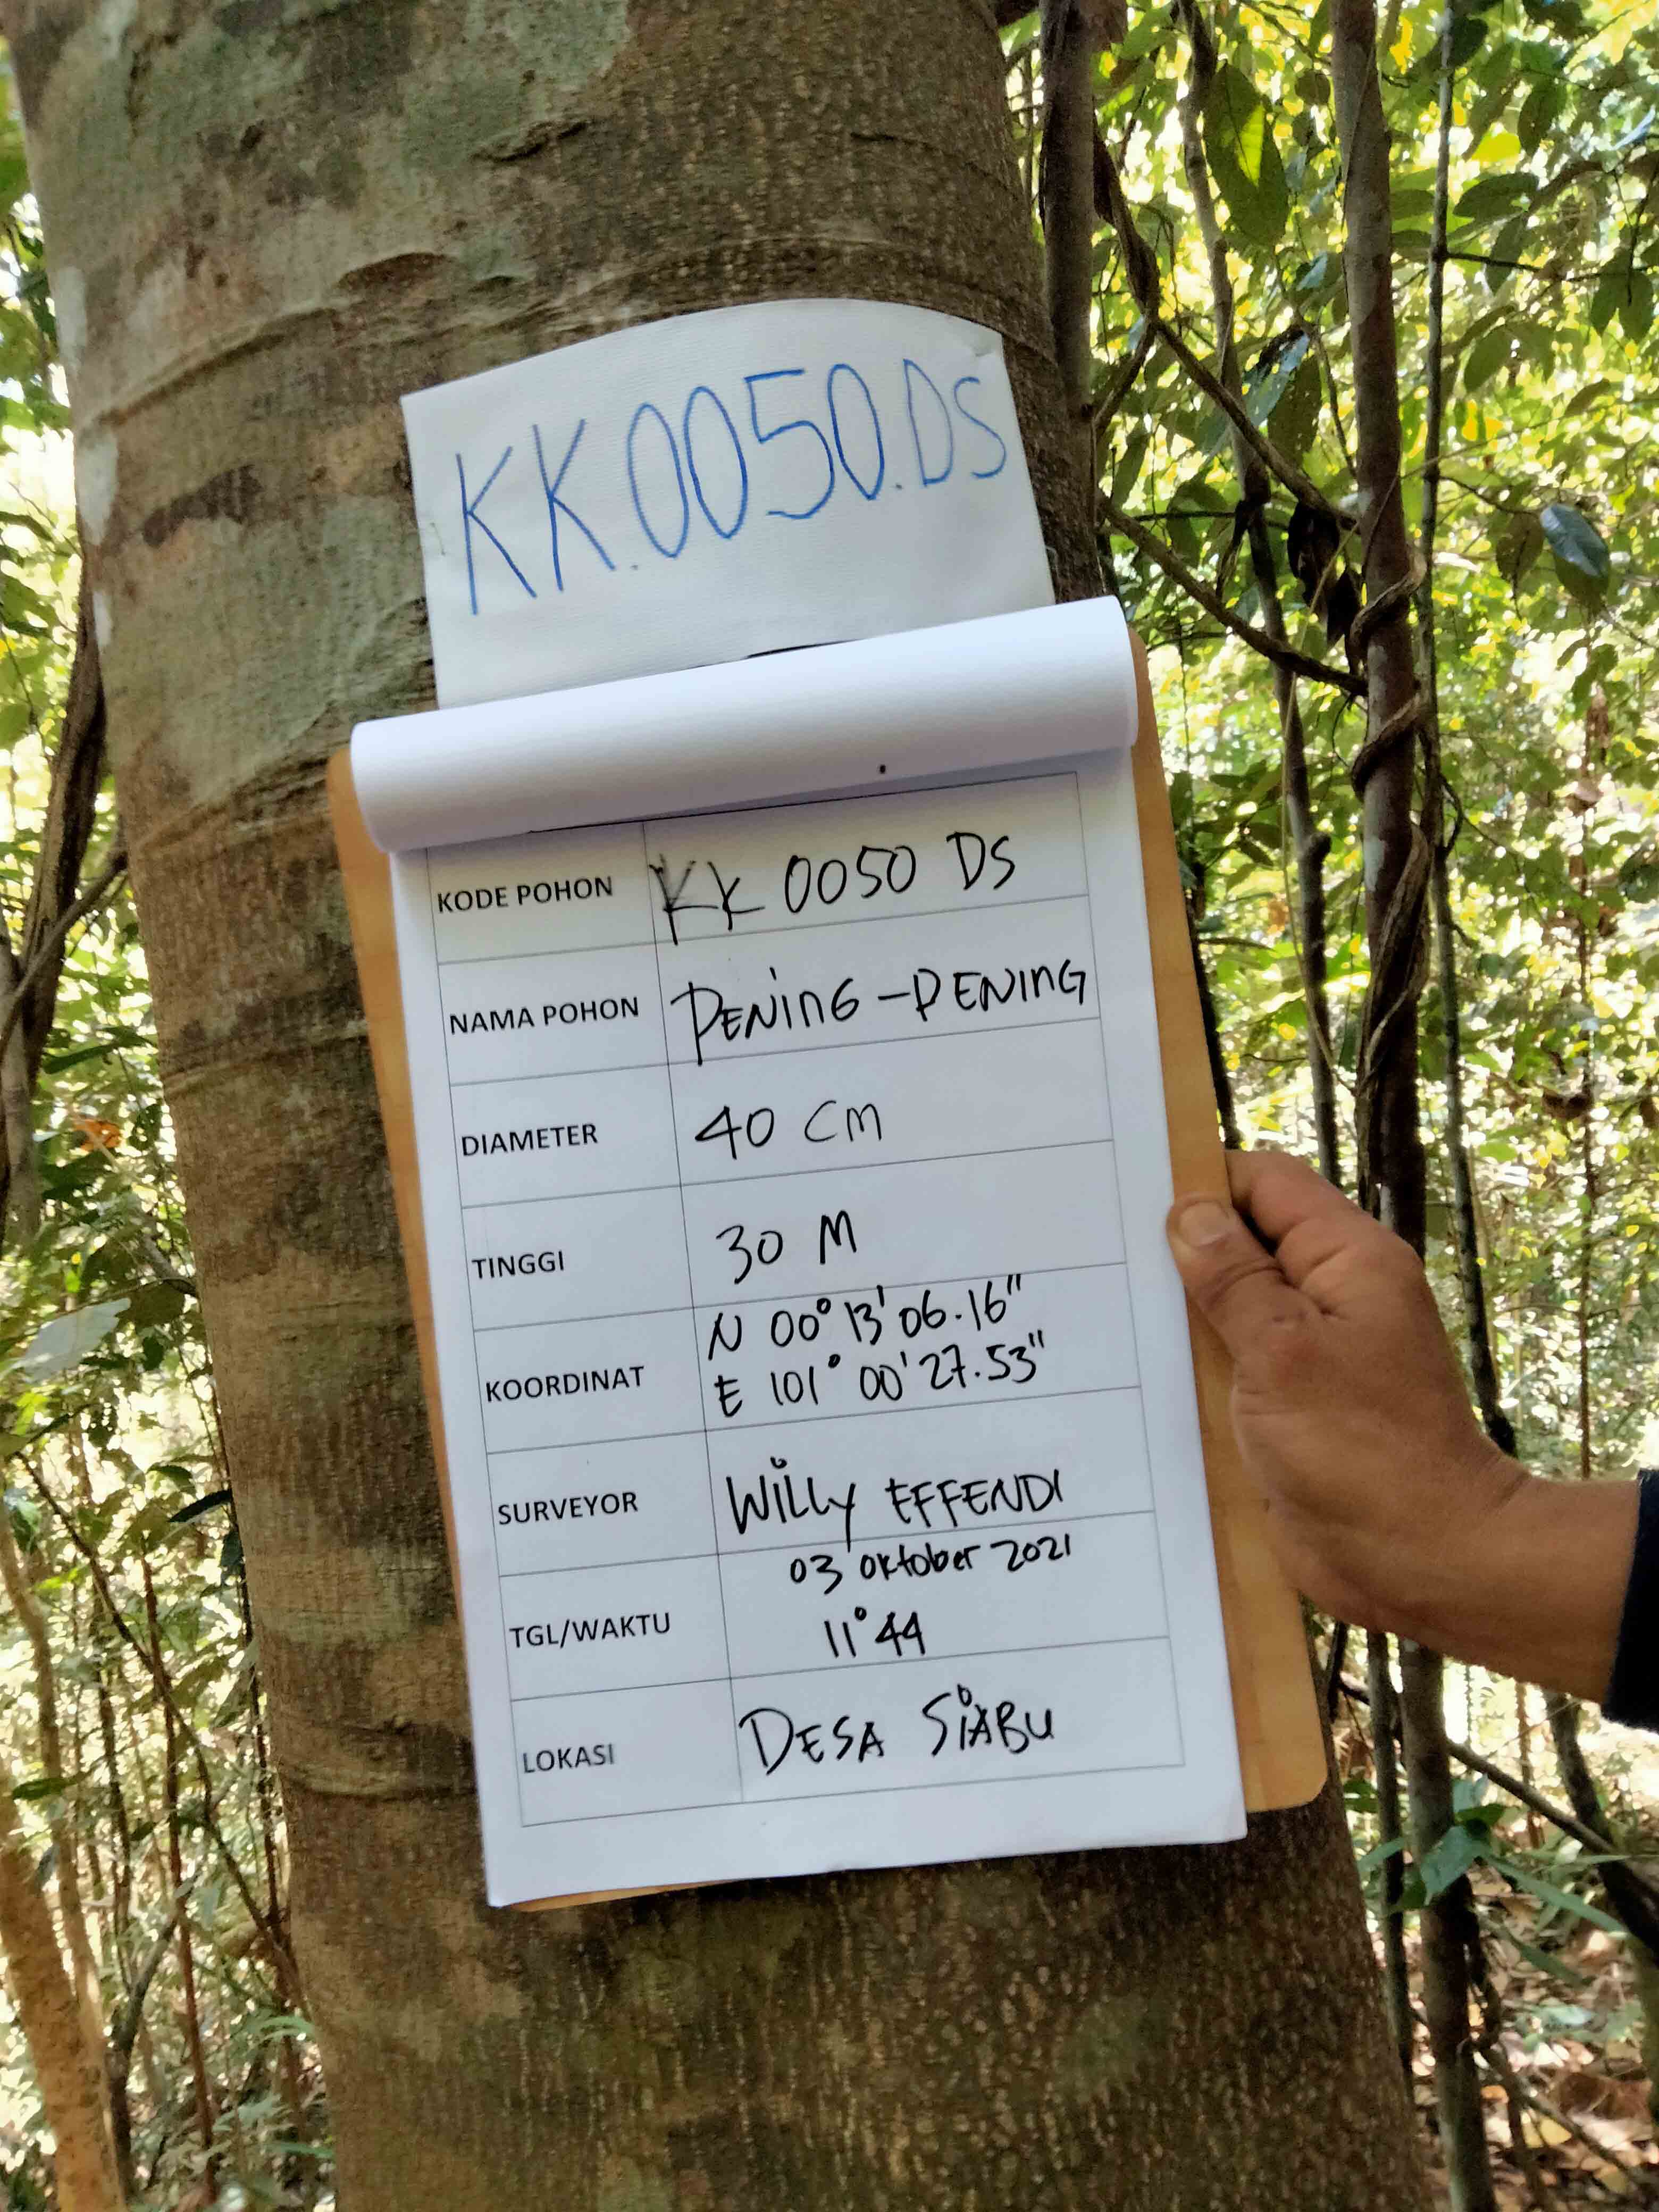 KK.0050.DS
KODE POHON KK 0050 DS
NAMA POHON PENiNG-PENiNG
DIAMETER 40 CM
TINGGI 30 M
KOORDINAT N 00° 13' 06.16"
E 101° 00' 27.53"
SURVEYOR WiLLy EFFENDI
TGL/WAKTU 03 Oktober 2021
11°44
LOKASI DESA SiABU